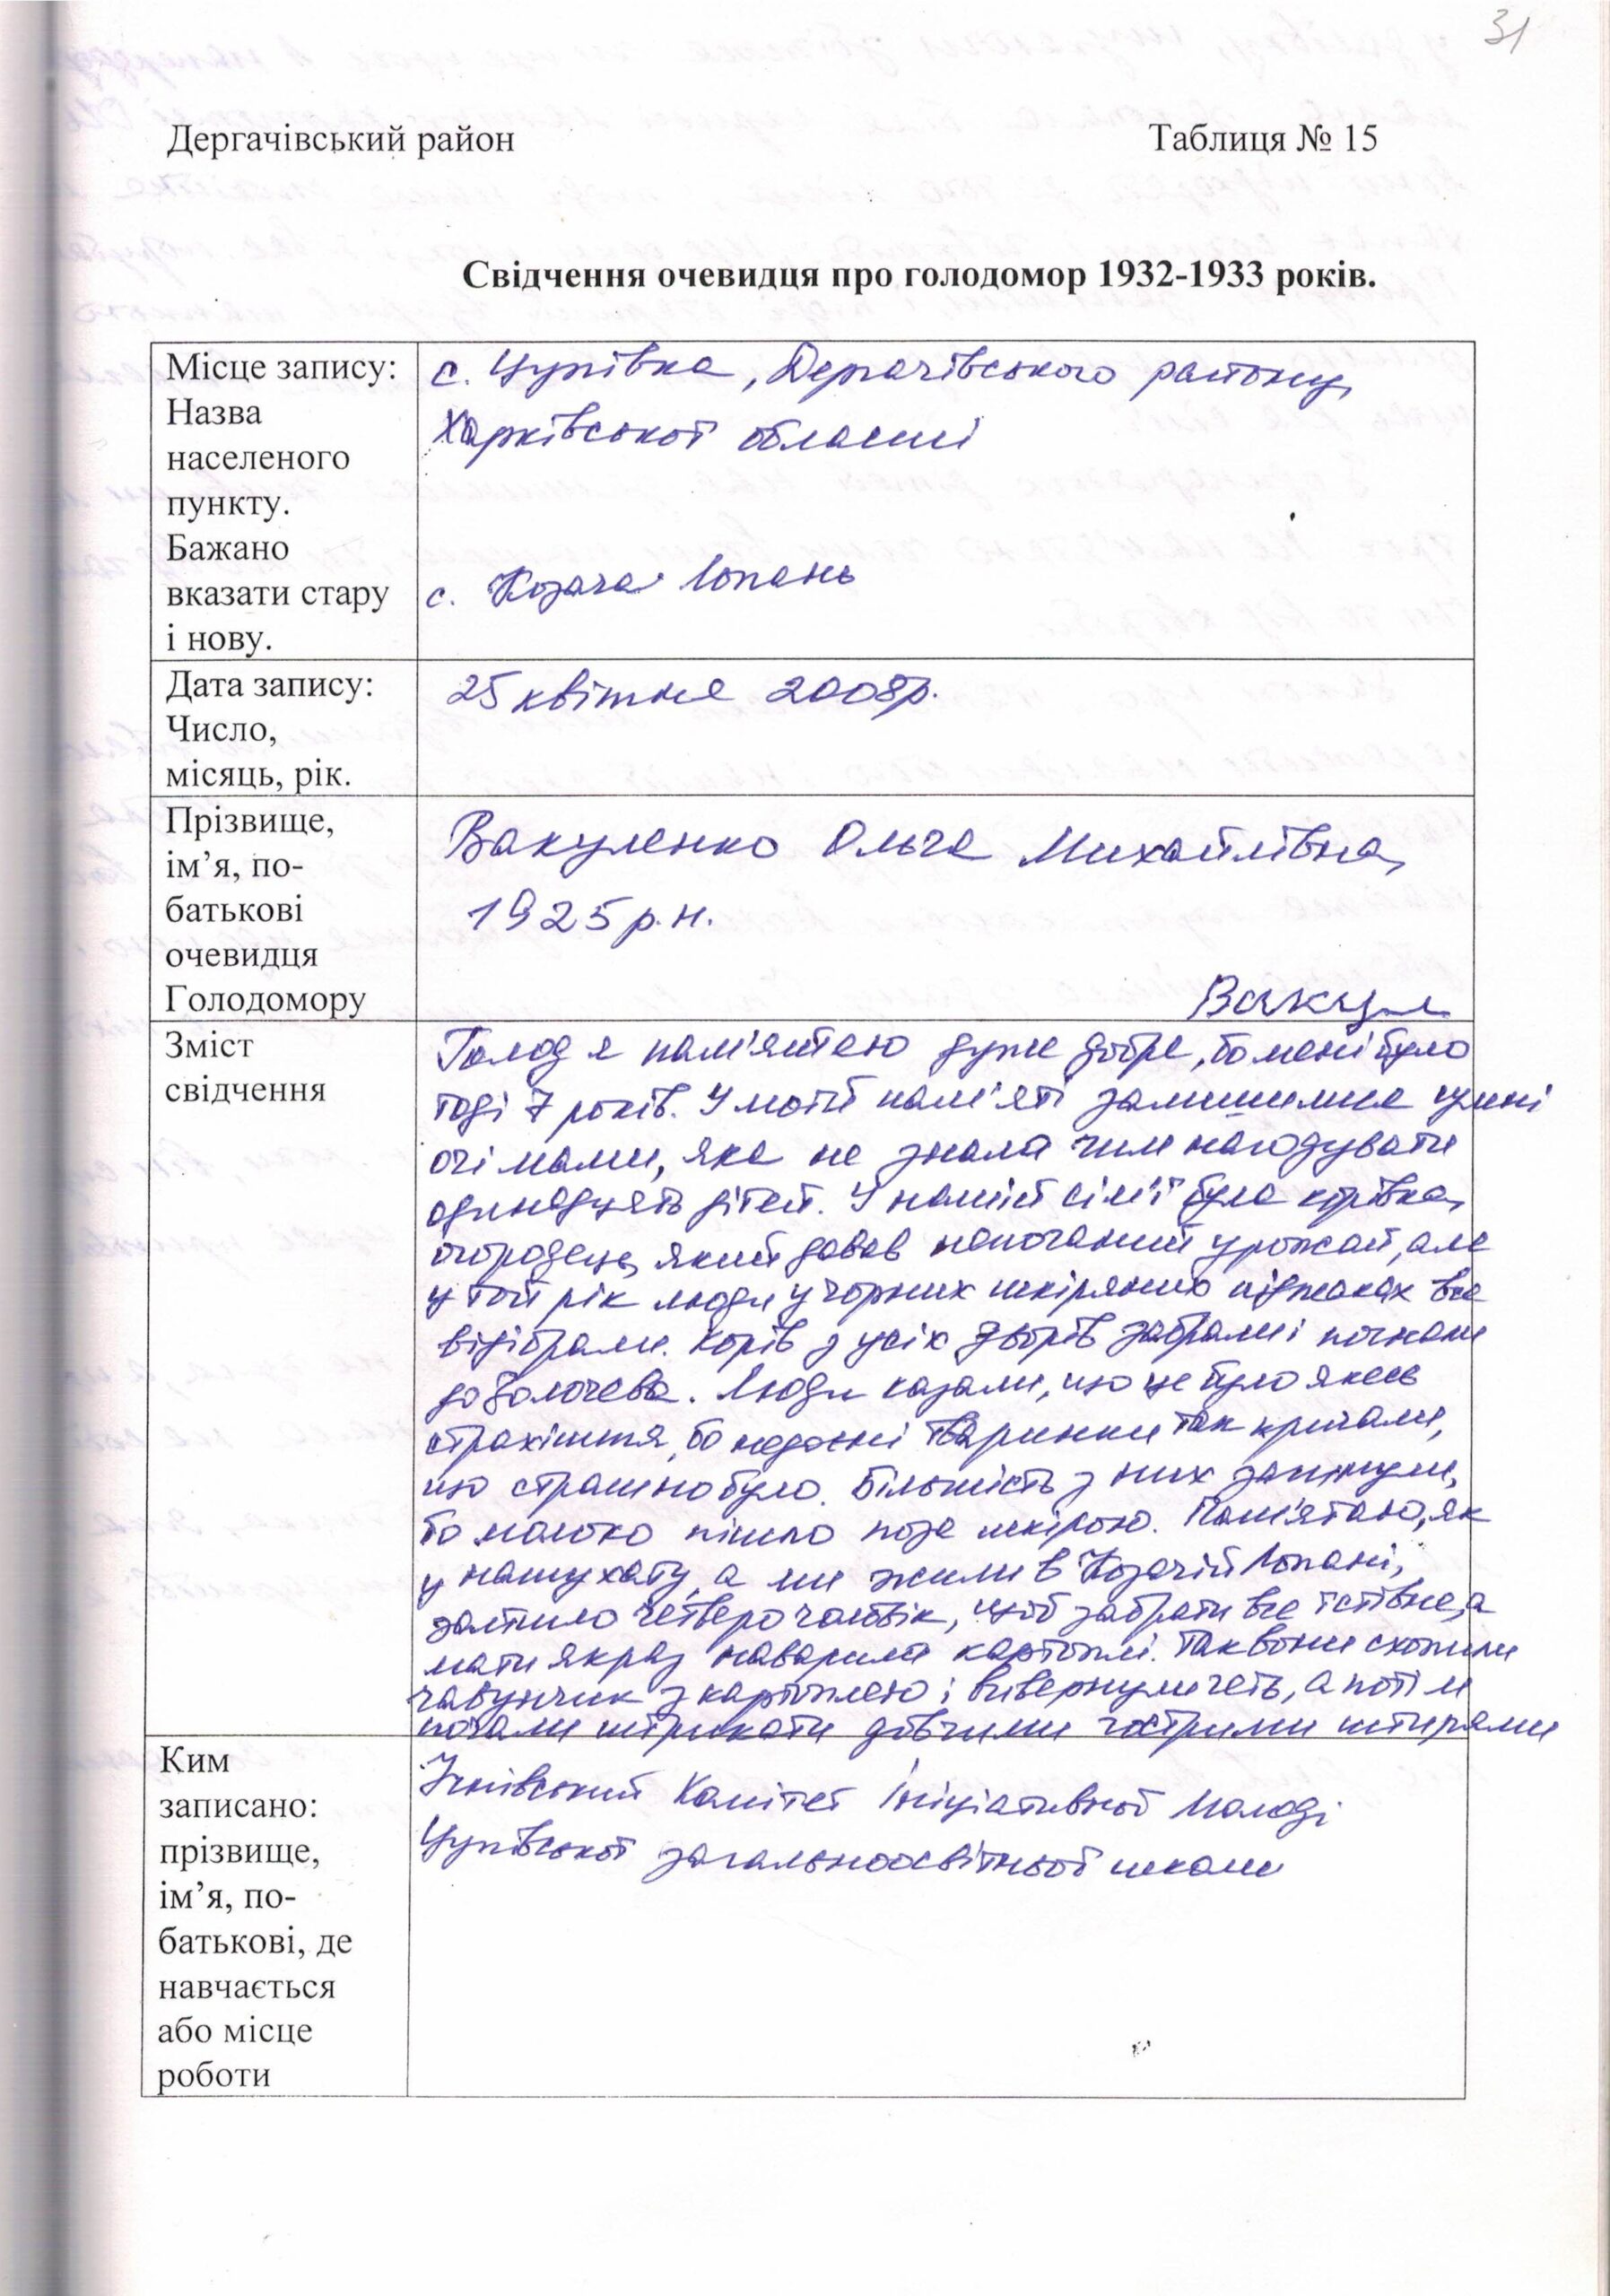 31
Дергачівський район Таблиця № 15
Свідчення очевидця про голодомор 1932-1933 років.
Місце запису:
Назва
населеного
пункту.
Бажано
вказати стару
і нову.
с. Цупівка, Дергачівського району,
Харківської області
с. Козача Лопань
Дата запису:
Число,
місяць, рік.
25 квітня 2008р.
Прізвище,
ім’я, по-
батькові
очевидця
Голодомору
Вакуленко Ольга Михайлівна,
1925 р.н.
Вакул
Зміст
свідчення
Голод я пам'ятаю дуже добре, бо мені було
тоді 7 років. У моїй пам'яті залишилися сумні
очі мами, яка не знала чим нагодувати
одинадцять дітей. У нашій сім'ї була корівка,
огородець, який давав непоганий урожай, але
у той рік люди у чорних шкіряних піджаках все
відібрали. Корів з усіх дворів забрали і погнали
до Золочева. Люди казали, що це було якесь
страхіття, бо недоєні тваринки так кричали,
що страшно було. Більшість з них загинули,
бо молоко пішло поза шкірою. Пам'ятаю, як
у нашу хату, а ми жили в Козачій Лопані,
зайшло четверо чоловік, щоб забрати все їстівне, а
мати якраз наварила картоплі. Так вони схопили
чавунчик з картоплею і вивернули геть, а потім
почали штрикати довгими гострими штирями
Ким
записано:
прізвище,
ім’я, по-
батькові, де
навчається
або місце
роботи
Учнівський Комітет Ініціативної Молоді
Цупівської загальноосвітньої школи